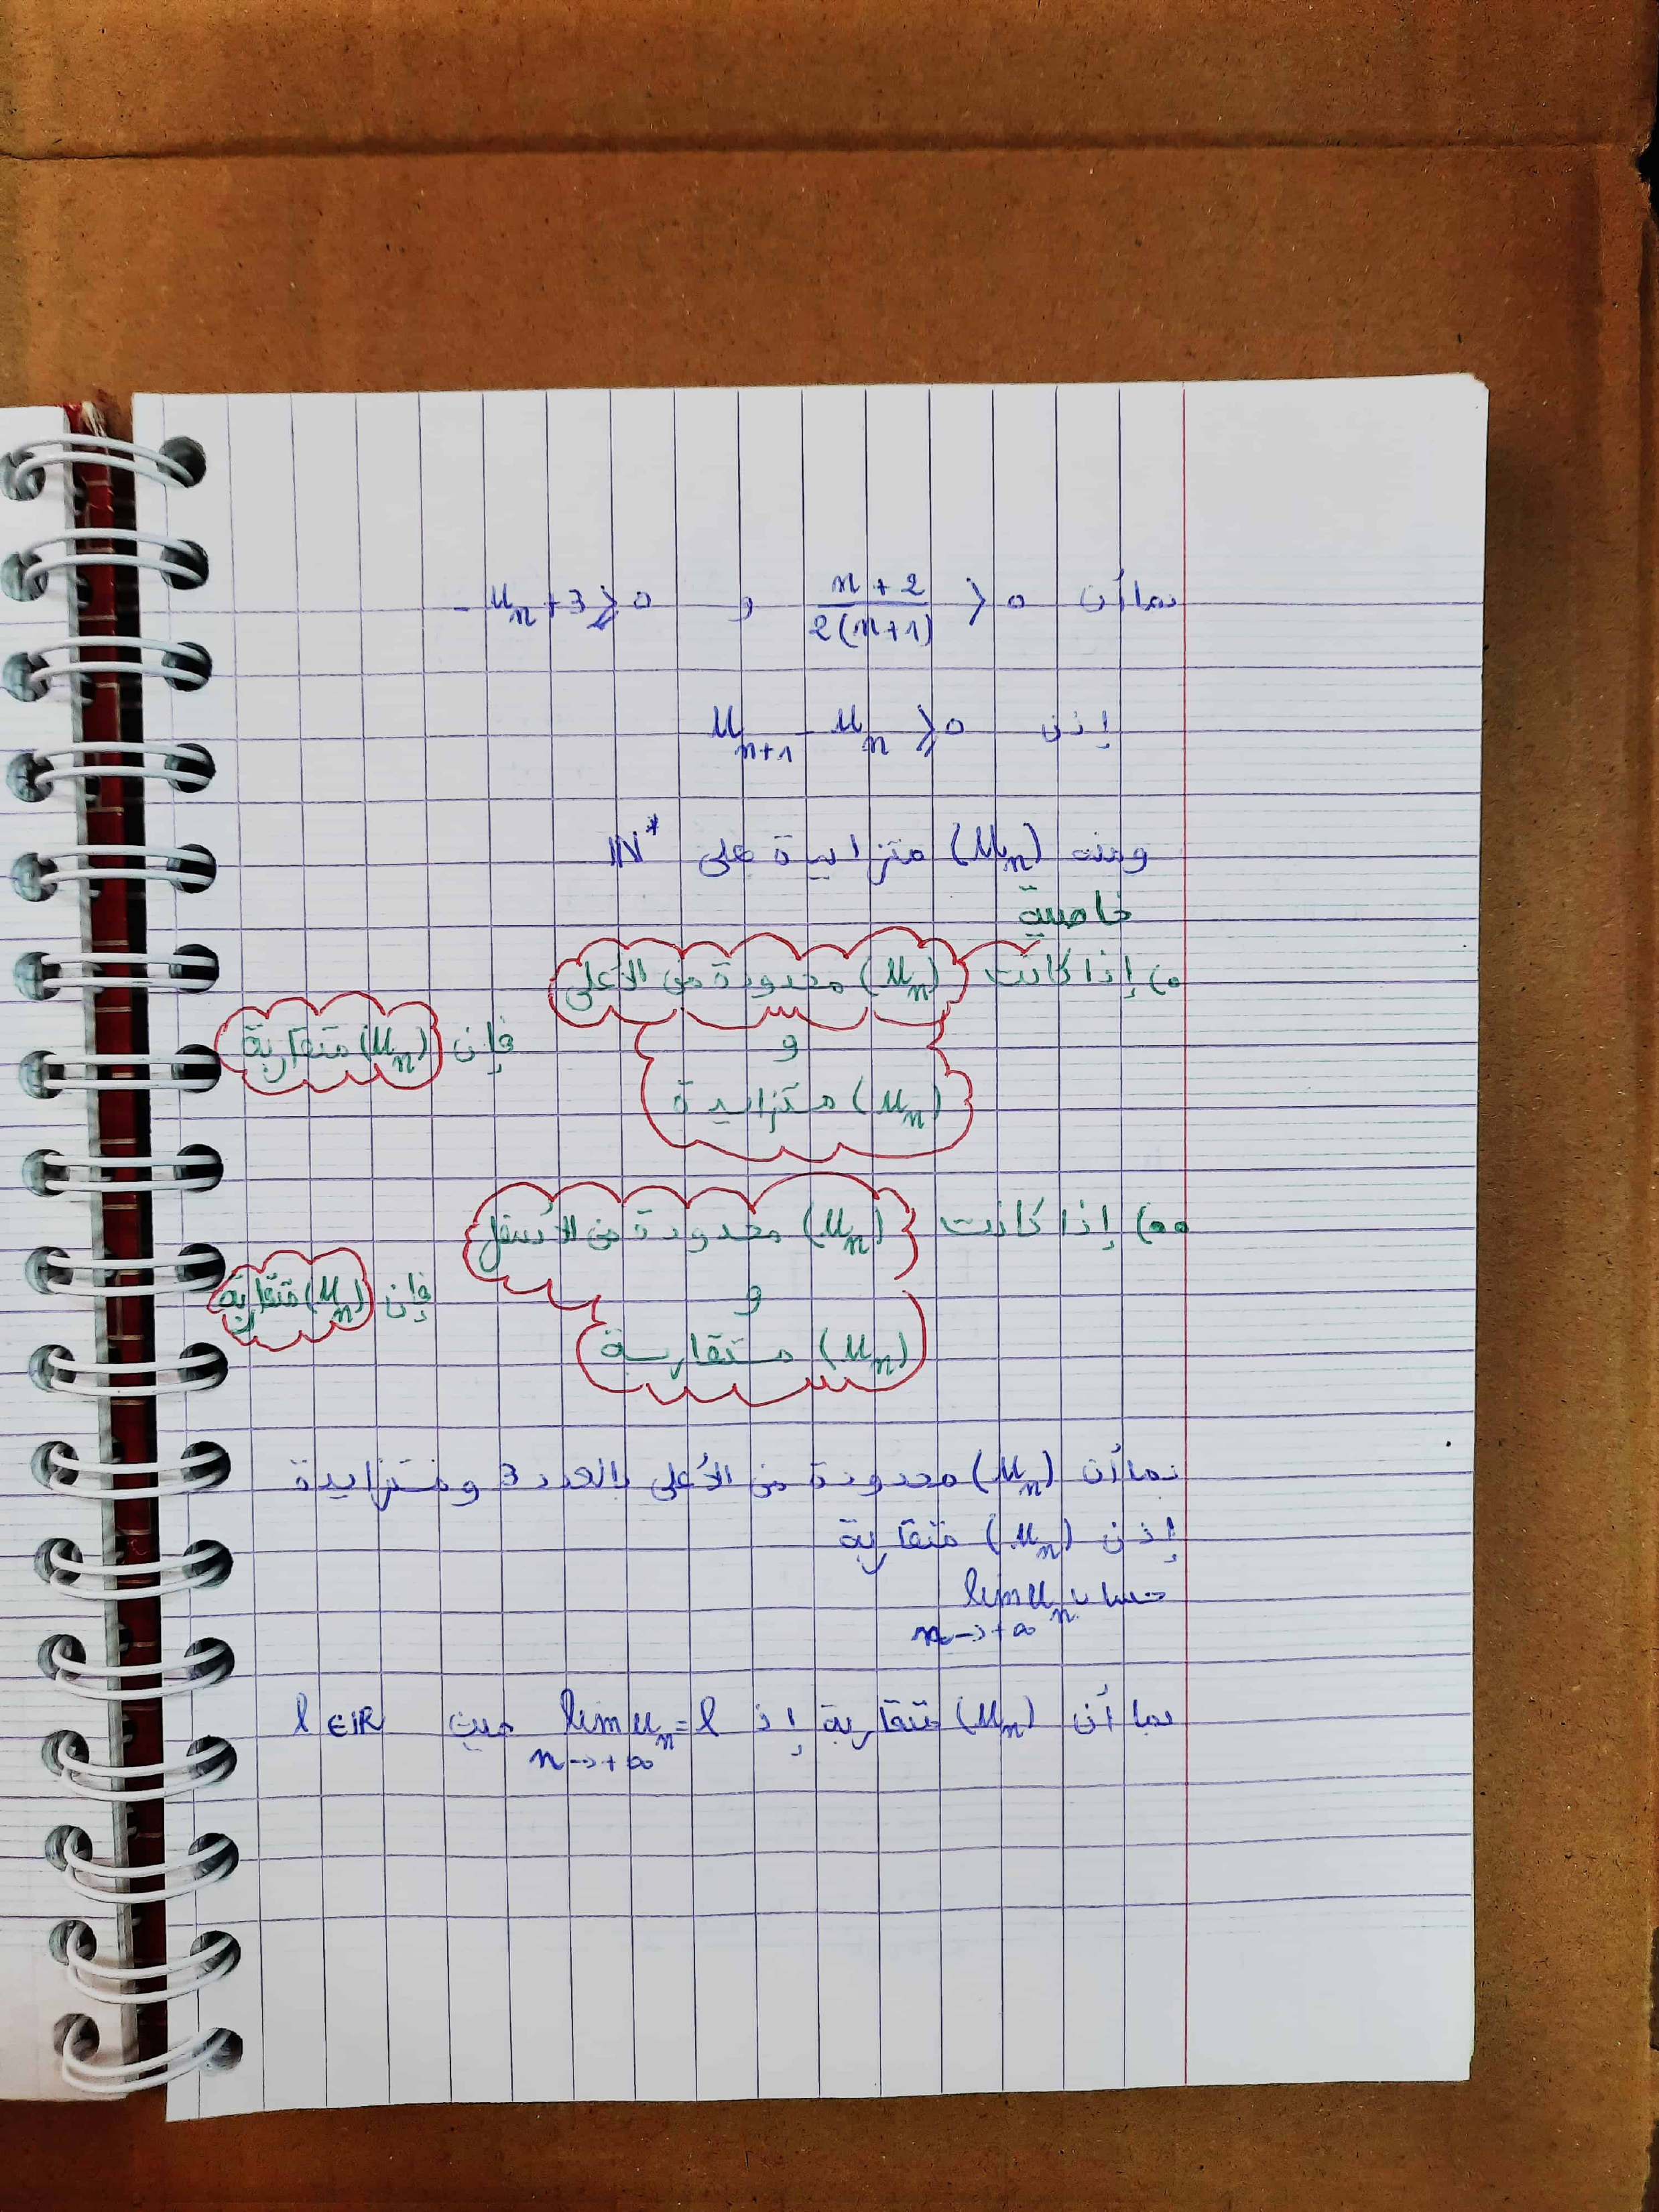 بما أن $\frac{n+2}{2(n+1)} > 0$ و $-u_n+3 \geqslant 0$
إذن $u_{n+1} - u_n \geqslant 0$
ومنه $(u_n)$ متزايدة على $\mathbb{N}^*$
خاصية
o) إذا كانت $(u_n)$ محدودة من الأعلى
و
فإن $(u_n)$ متقاربة
$(u_n)$ متزايدة
oo) إذا كانت $(u_n)$ محدودة من الأسفل
و
فإن $(u_n)$ متقاربة
$(u_n)$ متقاربة
بما أن $(u_n)$ محدودة من الأعلى بالعدد 3 ومتزايدة
إذن $(u_n)$ متقاربة
حساب $\lim_{n \to +\infty} u_n$
بما أن $(u_n)$ متقاربة إذ $\lim_{n \to +\infty} u_n = l$ حيث $l \in \mathbb{R}$